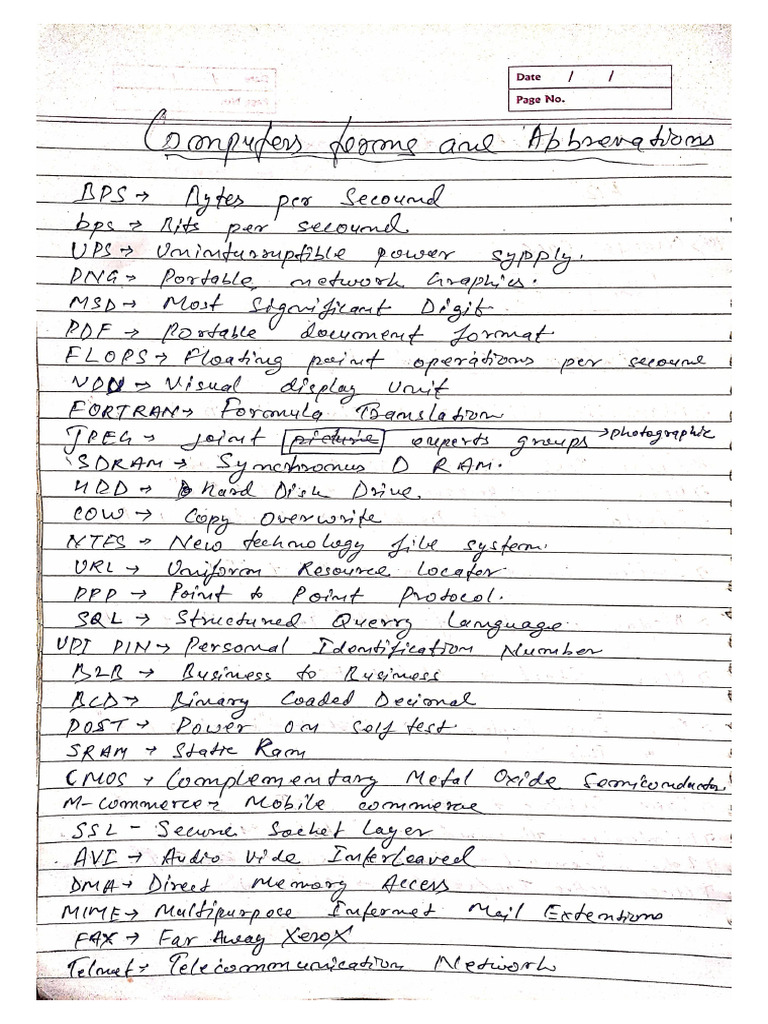 Date / /
Page No.
Computers terms and Abbrevations
BPS → Bytes per Secound
bps → Bits per secound
UPS → Uninturruptible power sypply.
PNG → Portable network Graphics.
MSD → Most Significant Digit
PDF → Portable document format
FLOPS → Floating point operations per secound
VDU → Visual display Unit
FORTRAN → Formula Translation
JPEG → joint picture experts groups → photographic
SDRAM → Synchronus D RAM.
HDD → Hard Disk Drive.
COW → Copy Overwrite
NTFS → New technology file system.
URL → Uniform Resource locator
PPP → Point to Point Protocol.
SQL → Structured Querry language
UPI PIN → Personal Identification Number
B2B → Business to Business
BCD → Binary Coaded Decimal
POST → Power on self test.
SRAM → Static Ram
CMOS → Complementary Metal Oxide Semiconductor
M-commerce → Mobile commerce
SSL - Secure Socket Layer
AVI → Audio vide Interleaved
DMA → Direct Memory Access
MIME → Multipurpose Internet Mail Extentions
FAX → Far Away XeroX
Telnet → Telecommunication Network